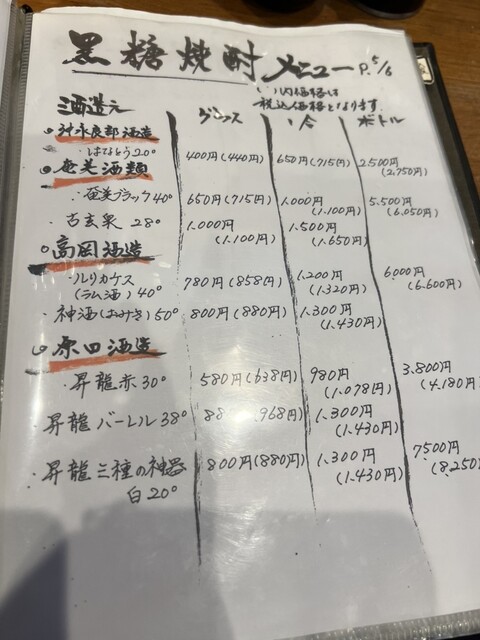 黒糖焼酎メニュー P.5/6
( )内価格は
税込価格となります。
酒造元 グラス 1合 ボトル
沖永良部酒造
・はなとう20° 400円(440円) 650円(715円) 2.500円
(2.750円)
奄美酒類
・奄美ブラック40° 650円(715円) 1.000円 5.500円
(1.100円) (6.050円)
・古玄泉 28° 1.000円 1.500円
(1.100円) (1.650円)
高岡酒造
・ルリカケス 780円(858円) 1.200円 6.000円
(ラム酒) 40° (1.320円) (6.600円)
・神酒(おみき)50° 800円(880円) 1.300円
(1.430円)
原田酒造
・昇龍赤30° 580円(638円) 980円 3.800円
(1.078円) (4.180円)
・昇龍 バーレル 38° 968円) 1.300円
(1.430円)
・昇龍 三種の神器 800円(880円) 1.300円 7500円
白20° (1.430円) (8.250